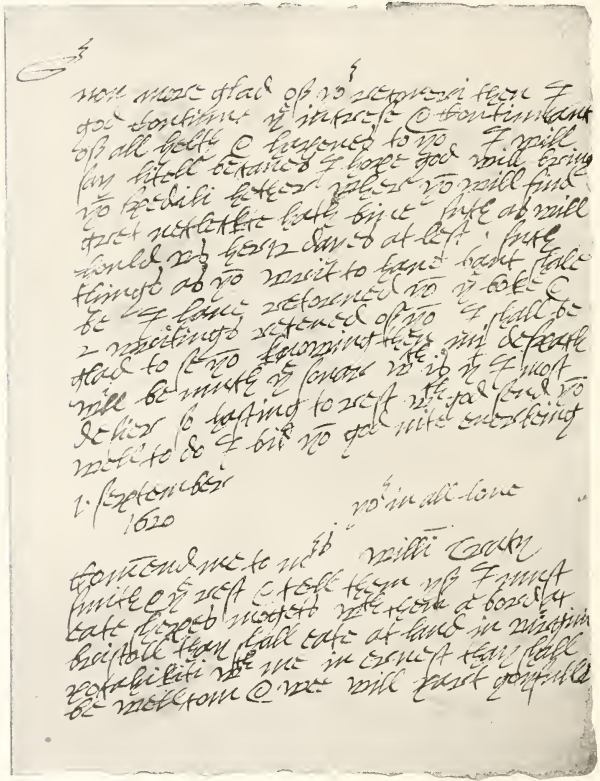 non more glad off yor retourn then I
god continue ye increse & continuans
off all helth & hapenes to yo I will
say litell becaues I hope god will bring
yo spedili hether wher yo will find
gret neclekte hath bine such as will
hould vs hers daies at lest. such
things as yo writ to have bant shale
be I have retorned yo ye boke &
2 writings receved off yo I shall be
glad to se yo knowing then mi despach
will be much ye sonar wth is yt I most
desier so hasting to rest wth god send yo
well to do I bid yo god nite ever being
1. September
1620
yors in all love
Comend me to mrs willi Tracy
smith & ye rest & tell them yff I must
eate with them a bord at
bristoll than shall eate at land in virgini
wth me in ernest than shall
be wellcom & wee will part